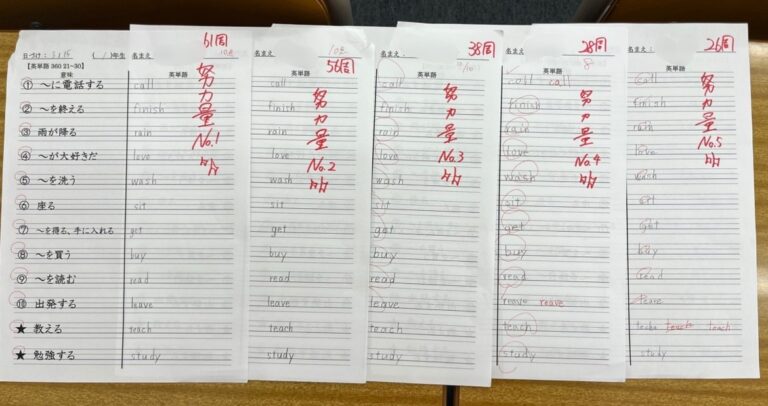 日づけ： 5/15 （ 1 ）年生 名まえ
【英単語 360 21~30】
意味 英単語
① ～に電話する call
② ～を終える finish
③ 雨が降る rain
④ ～が大好きだ love
⑤ ～を洗う wash
⑥ 座る sit
⑦ ～を得る、手に入れる get
⑧ ～を買う buy
⑨ ～を読む read
⑩ 出発する leave
★ 教える teach
★ 勉強する study
61周
努力量
No.1
名まえ
英単語
call
finish
rain
love
wash
sit
get
buy
read
leave
teach
study
56周
努力量
No.2
名まえ：
英単語
call
finish
rain
love
wash
sit
get
buy
read
leave
teach
study
38周
努力量
No.3
名まえ：
英単語
call call
finish
rain
love
wash
sit
get
buy
read
leave leave
teach
study
28周
8
努力量
No.4
名まえ：
英単語
call
finish
rain
love
wash
sit
get
buy
read
leave
teach teach
study
26周
努力量
No.5